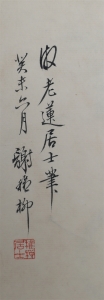 倣老蓮居士筆
癸未六月 謝稚柳